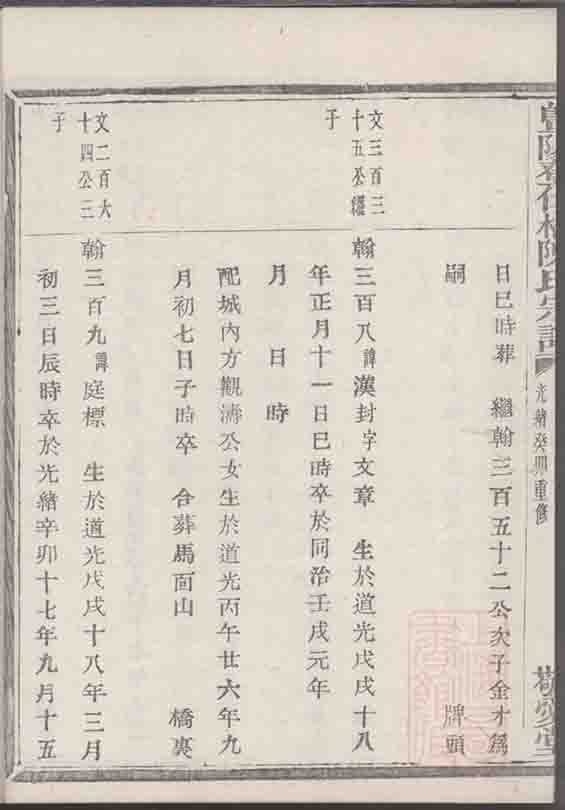 陳氏宗譜
光緒癸卯重修
敬愛堂
日巳時葬 繼翰三百五十二公次子金才爲
嗣 牌頭
文三百三
十五公繼
子
翰三百八諱漢封字文章 生於道光戊戌十八
年正月十一日巳時卒於同治壬戌元年
月 日 時
配城內方觀濤公女生於道光丙午廿六年九
月初七日子時卒 合葬馬面山 橋裏
文二百六
十四公三
子
翰三百九諱庭標 生於道光戊戌十八年三月
初三日辰時卒於光緒辛卯十七年九月十五